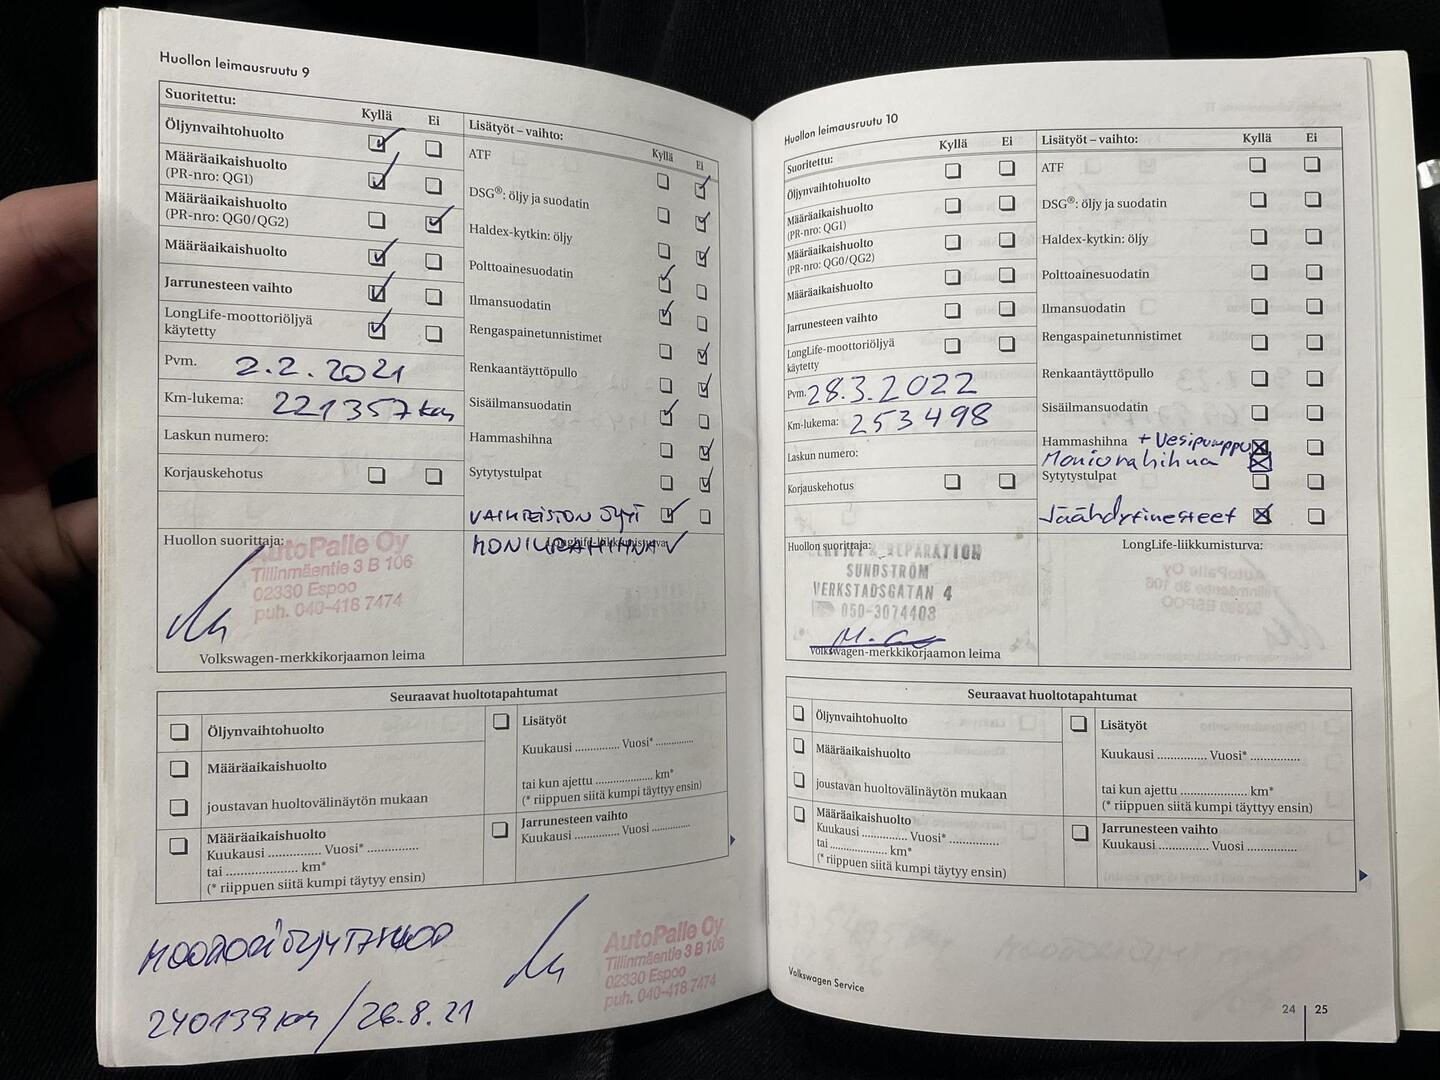 Huollon leimausruutu 9
Suoritettu:
Kyllä Ei
Öljynvaihtohuolto
Määräaikaishuolto
(PR-nro: QG1)
Määräaikaishuolto
(PR-nro: QG0/QG2)
Määräaikaishuolto
Jarrunesteen vaihto
LongLife-moottoriöljyä
käytetty
Pvm. 2.2.2021
Km-lukema: 221357 km
Laskun numero:
Korjauskehotus
Huollon suorittaja:
AutoPalle Oy
Tillinmäentie 3 B 106
02330 Espoo
puh. 040-418 7474
Volkswagen-merkkikorjaamon leima
Lisätyöt – vaihto:
Kyllä Ei
ATF
DSG®: öljy ja suodatin
Haldex-kytkin: öljy
Polttoainesuodatin
Ilmansuodatin
Rengaspainetunnistimet
Renkaantäyttöpullo
Sisäilmansuodatin
Hammashihna
Sytytystulpat
VAIHTEISTON ÖLJYT
MONIURAHIHNA
LongLife-liikkumisturva:
Seuraavat huoltotapahtumat
Öljynvaihtohuolto
Määräaikaishuolto
joustavan huoltovälinäytön mukaan
Määräaikaishuolto
Kuukausi ............... Vuosi* ...............
tai ..................... km*
(* riippuen siitä kumpi täytyy ensin)
Lisätyöt
Kuukausi ............. Vuosi* .............
tai kun ajettu .................... km*
(* riippuen siitä kumpi täyttyy ensin)
Jarrunesteen vaihto
Kuukausi ............. Vuosi .............
240139 km / 26.8.21
AutoPalle Oy
Tillinmäentie 3 B 106
02330 Espoo
puh. 040-418 7474
Huollon leimausruutu 10
Suoritettu:
Kyllä Ei
Öljynvaihtohuolto
Määräaikaishuolto
(PR-nro: QG1)
Määräaikaishuolto
(PR-nro: QG0/QG2)
Määräaikaishuolto
Jarrunesteen vaihto
LongLife-moottoriöljyä
käytetty
Pvm. 28.3.2022
Km-lukema: 253498
Laskun numero:
Korjauskehotus
Huollon suorittaja:
SERVICE & REPARATION
SUNDSTRÖM
VERKSTADSGATAN 4
050-3074408
Volkswagen-merkkikorjaamon leima
Lisätyöt – vaihto:
Kyllä Ei
ATF
DSG®: öljy ja suodatin
Haldex-kytkin: öljy
Polttoainesuodatin
Ilmansuodatin
Rengaspainetunnistimet
Renkaantäyttöpullo
Sisäilmansuodatin
Hammashihna + Vesipumppu
Moniurahihna
Sytytystulpat
Jäähdytinesteet
LongLife-liikkumisturva:
Seuraavat huoltotapahtumat
Öljynvaihtohuolto
Määräaikaishuolto
joustavan huoltovälinäytön mukaan
Määräaikaishuolto
Kuukausi ............. Vuosi* .............
tai ..................... km*
(* riippuen siitä kumpi täytyy ensin)
Lisätyöt
Kuukausi ............... Vuosi* ...............
tai kun ajettu ..................... km*
(* riippuen siitä kumpi täyttyy ensin)
Jarrunesteen vaihto
Kuukausi ............... Vuosi ...............
Volkswagen Service
24 | 25